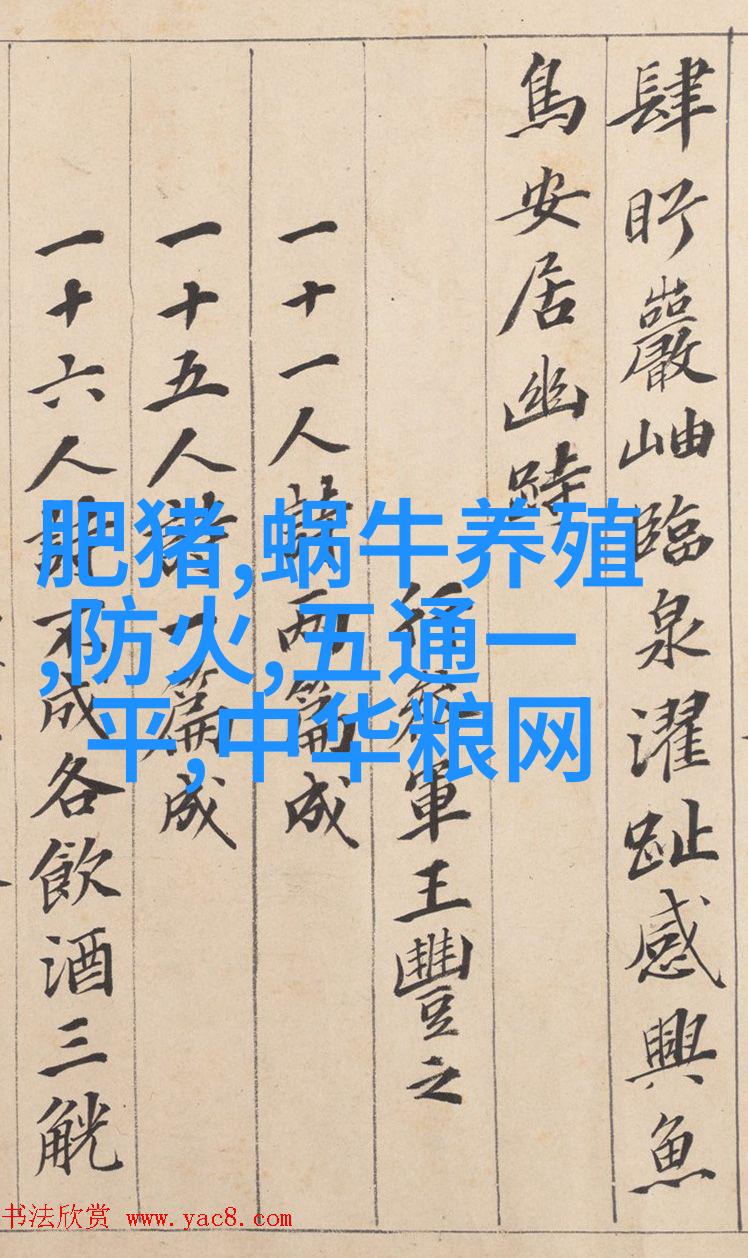 肆眄巖岫臨泉濯趾感興魚
鳥安居幽跱
行參軍王豐之
一十一人詩兩篇成
一十五人詩一篇成
一十六人詩不成各飲酒三觥
肥猪,蜗牛养殖
,防火,五通一
平,中华粮网
书法欣赏 www.yac8.com